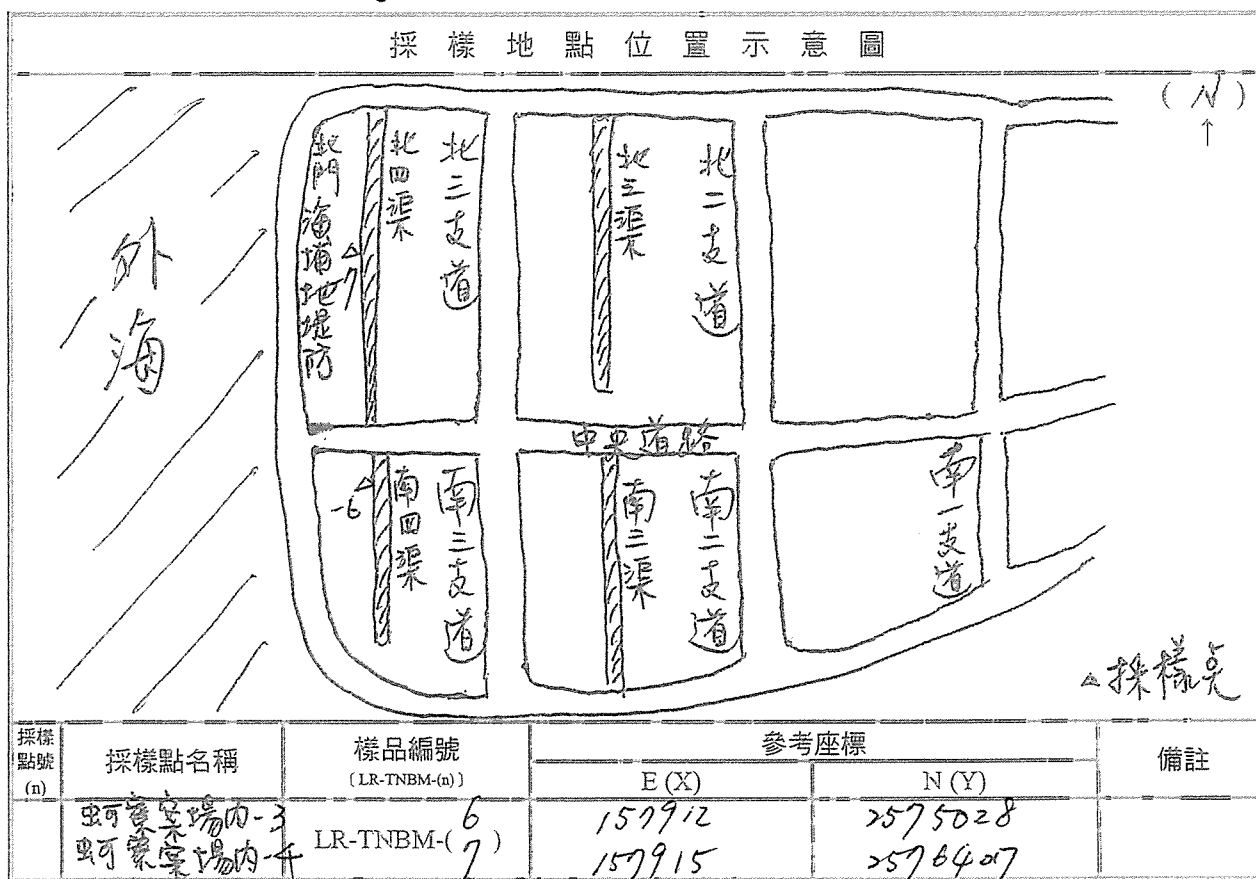 採樣地點位置示意圖
(N)
↑
外海
北門海埔地堤防
△-7
北四渠
北三支道
北三渠
北二支道
中央道路
△-6
南四渠
南三支道
南三渠
南二支道
南一支道
△採樣点
採樣點號(n)
採樣點名稱
樣品編號
〔LR-TNBM-(n)〕
參考座標
E (X)
N (Y)
備註
蚵寮案場內-3
蚵寮案場內-4
LR-TNBM-( 6
7 )
157912
157915
2575028
2576407